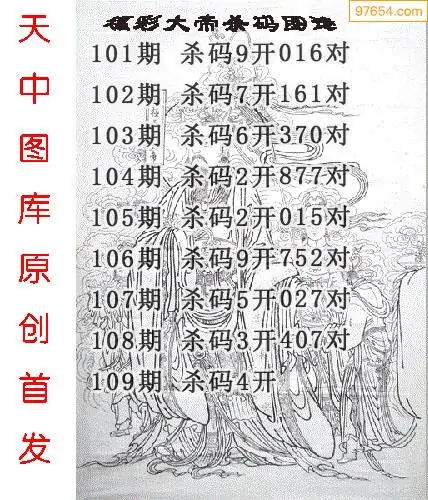 97654.com
福彩大帝杀码图
天中图库原创首发
101期 杀码9开016对
102期 杀码7开161对
103期 杀码6开370对
104期 杀码2开877对
105期 杀码2开015对
106期 杀码9开752对
107期 杀码5开027对
108期 杀码3开407对
109期 杀码4开